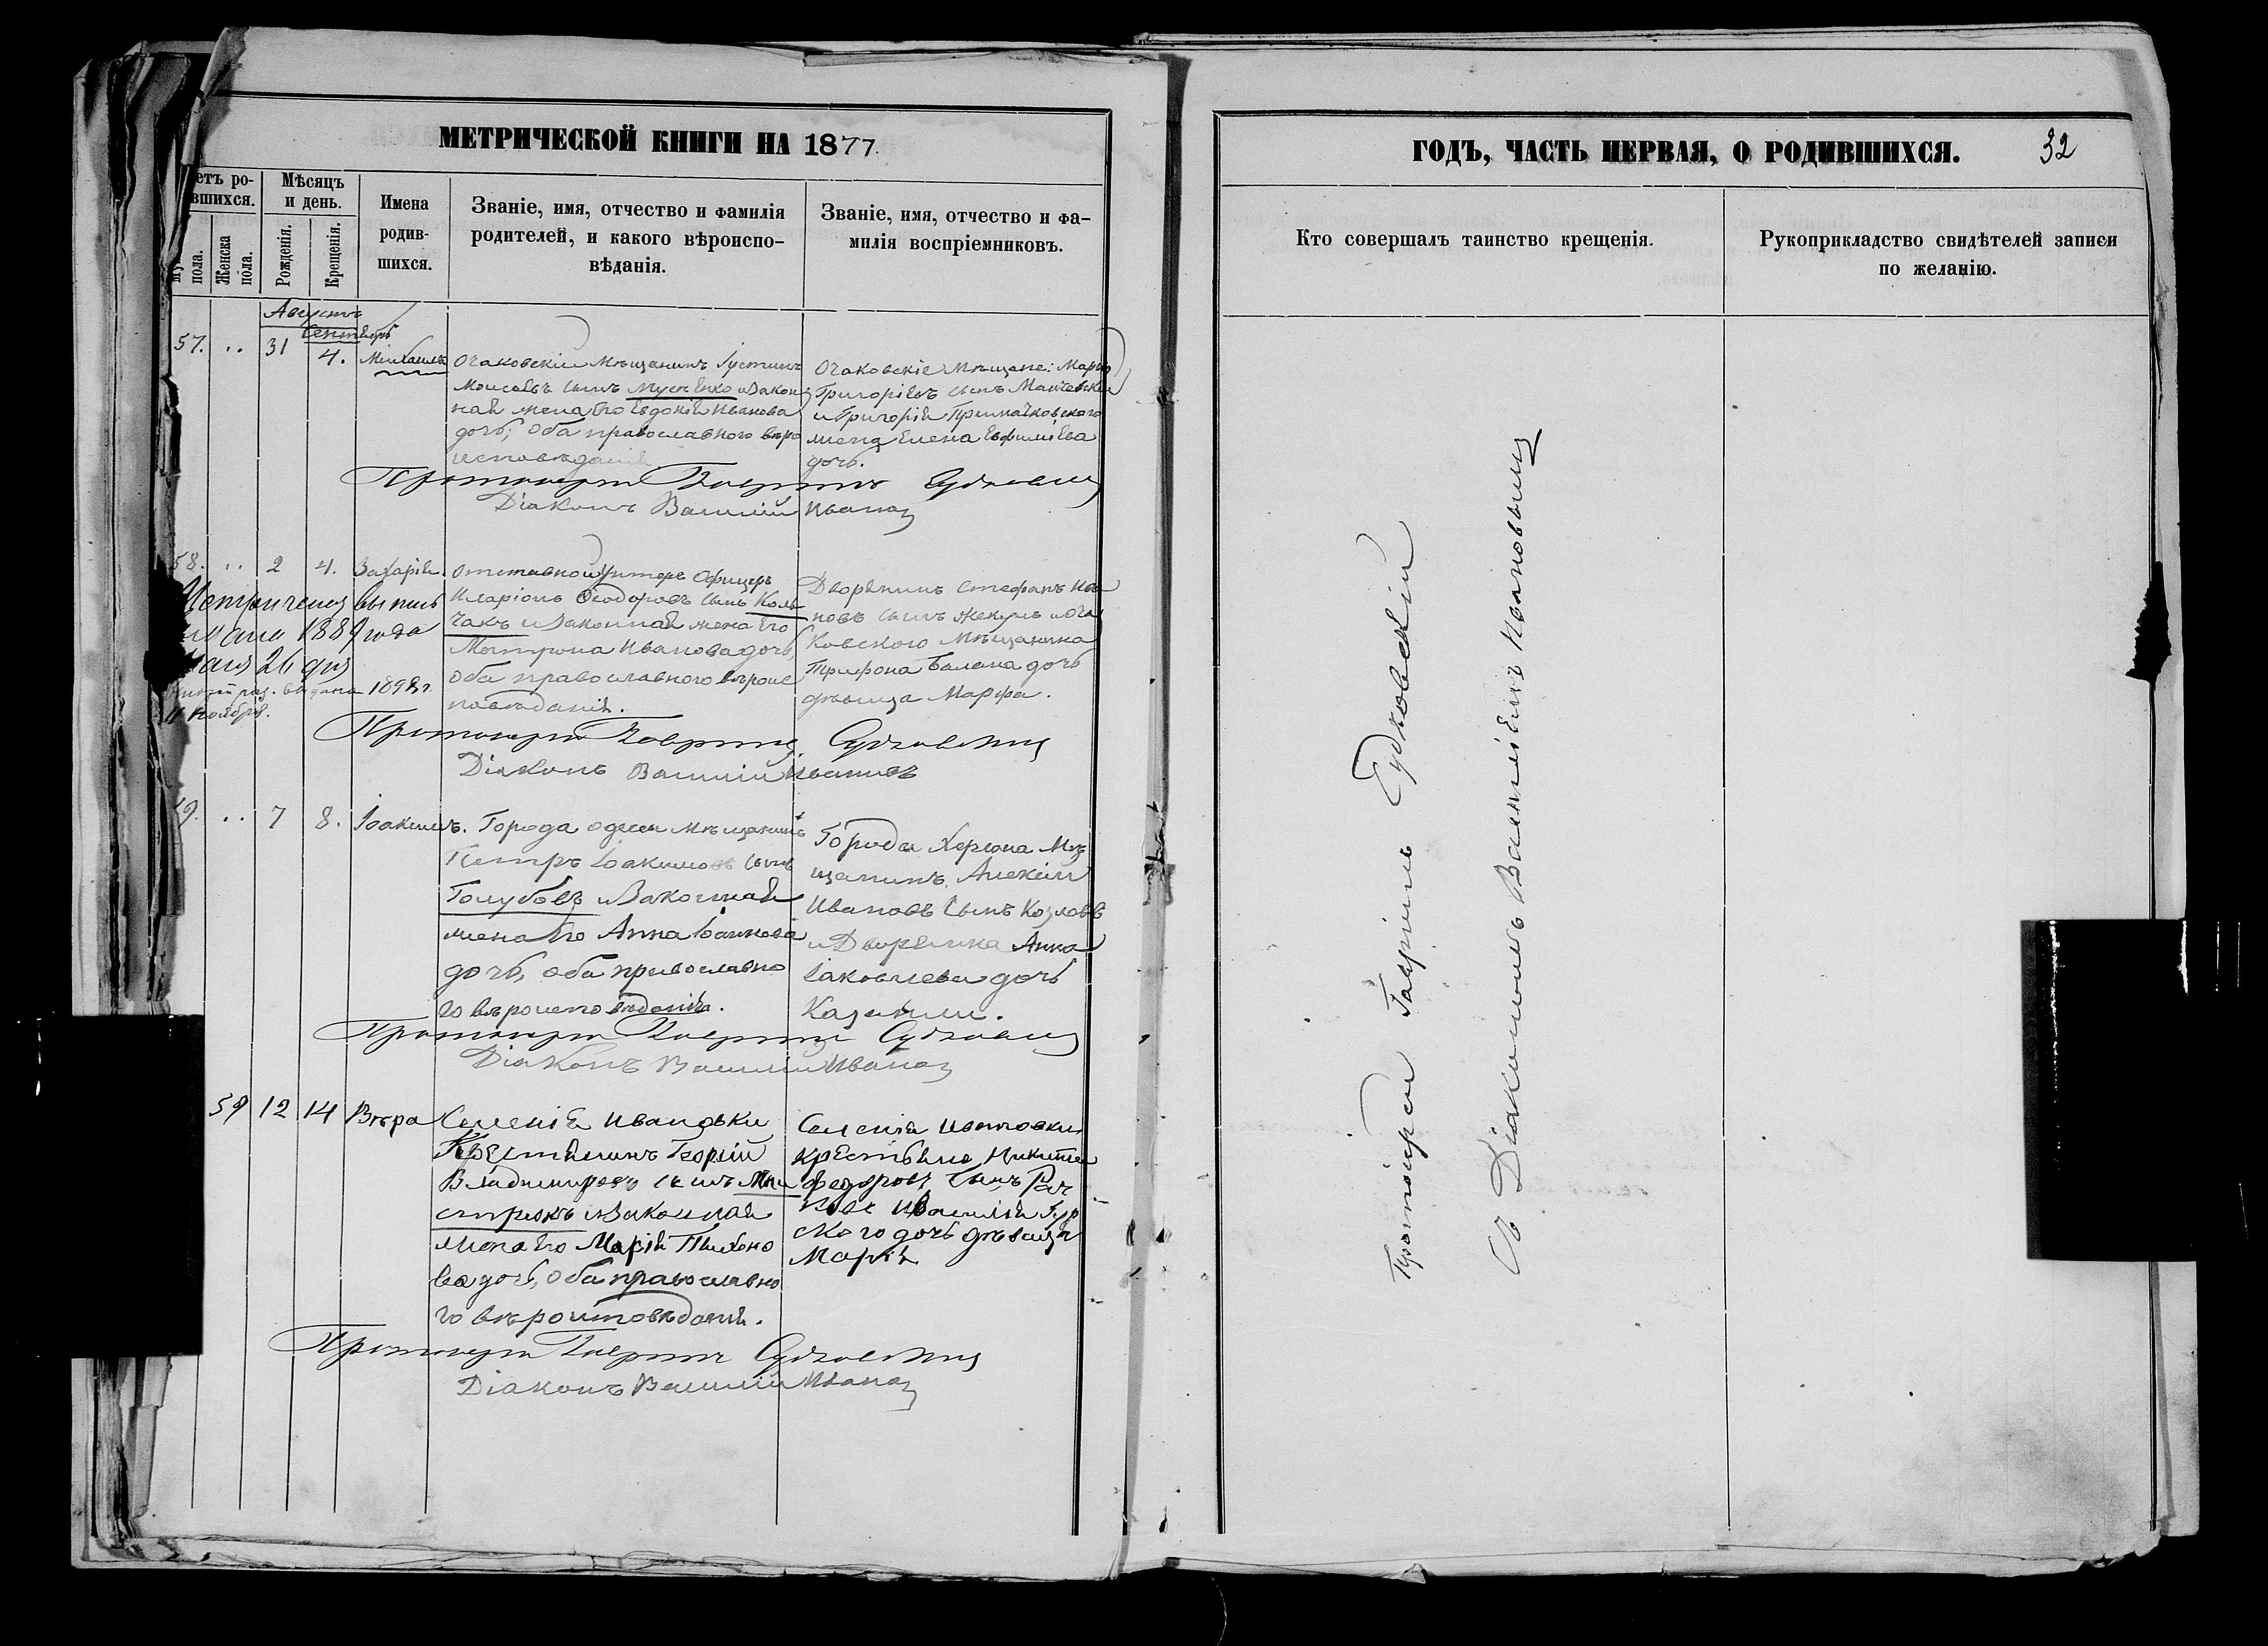 МЕТРИЧЕСКОЙ КНИГИ НА 1877.
етъ ро-
вшихся.
Мѣсяцъ
и день.
пола.
Женска
пола.
Рожденія.
Крещенія.
Имена
родив-
шихся.
Званіе, имя, отчество и фамилія
родителей, и какого вѣроиспо-
вѣданія.
Званіе, имя, отчество и фа-
милія воспріемниковъ.
Августъ
Сентябрь
57. .. 31 4. Михаилъ
Очаковскій Мѣщанинъ Іустинъ
Моисеевъ сынъ Мусіенко и закон
ная жена его Евдокія Иванова
дочь; оба православнаго вѣро
исповѣданія
Очаковскіе Мѣщане:
Григоріевъ сынъ
и Григорія
жена Елена Евфиміева
дочь.
Протоіерей Гавріилъ Судковскій
Діаконъ Василій Ивановъ
58. .. 2 4. Захарія.
Отставной Унтеръ Офицеръ
Иларіонъ Ѳеодоровъ сынъ Коль
чакъ и законная жена его
Матрона Иванова дочь
оба православнаго вѣроис
повѣданія.
Дворянинъ Стефанъ Ива
новъ сынъ Жекулъ и Оча
ковского Мѣщанина
Трифона Балана дочь
дѣвица Марфа.
выпись
1889 года
26 дня
раз. выдана 1898 г.
11 ноября.
Протоіерей Гавріилъ Судковскій
Діаконъ Василій Ивановъ
9. .. 7 8. Іоакимъ.
Города Одессы Мѣщанинъ
Петръ Іоакимовъ сынъ
Голубовъ и законная
жена его Анна
дочь, оба православна
го вѣроисповѣданія.
Города Херсона Мѣ
щанинъ Алексій
Ивановъ сынъ Козловъ
и Дворянка Анна
Іаковлева дочь
Протоіерей Гавріилъ Судковскій
Діаконъ Василій Ивановъ
59 12 14 Вѣра
Селенія Ивановки
Крестьянинъ Георгій
Владимировъ сынъ
и законная
жена его Марія Тихоно
ва дочь, оба православно
го вѣроисповѣданія.
Селенія Ивановки
крестьяне Никита
Федоровъ сынъ
и Василія
ского дочь дѣвица
Марія
Протоіерей Гавріилъ Судковскій
Діаконъ Василій Ивановъ
ГОДЪ, ЧАСТЬ ПЕРВАЯ, О РОДИВШИХСЯ.
32
Кто совершалъ таинство крещенія.
Рукоприкладство свидѣтелей записи
по желанію.
Протоіерей Гавріилъ Судковскій
съ Діакономъ Василіемъ Ивановымъ